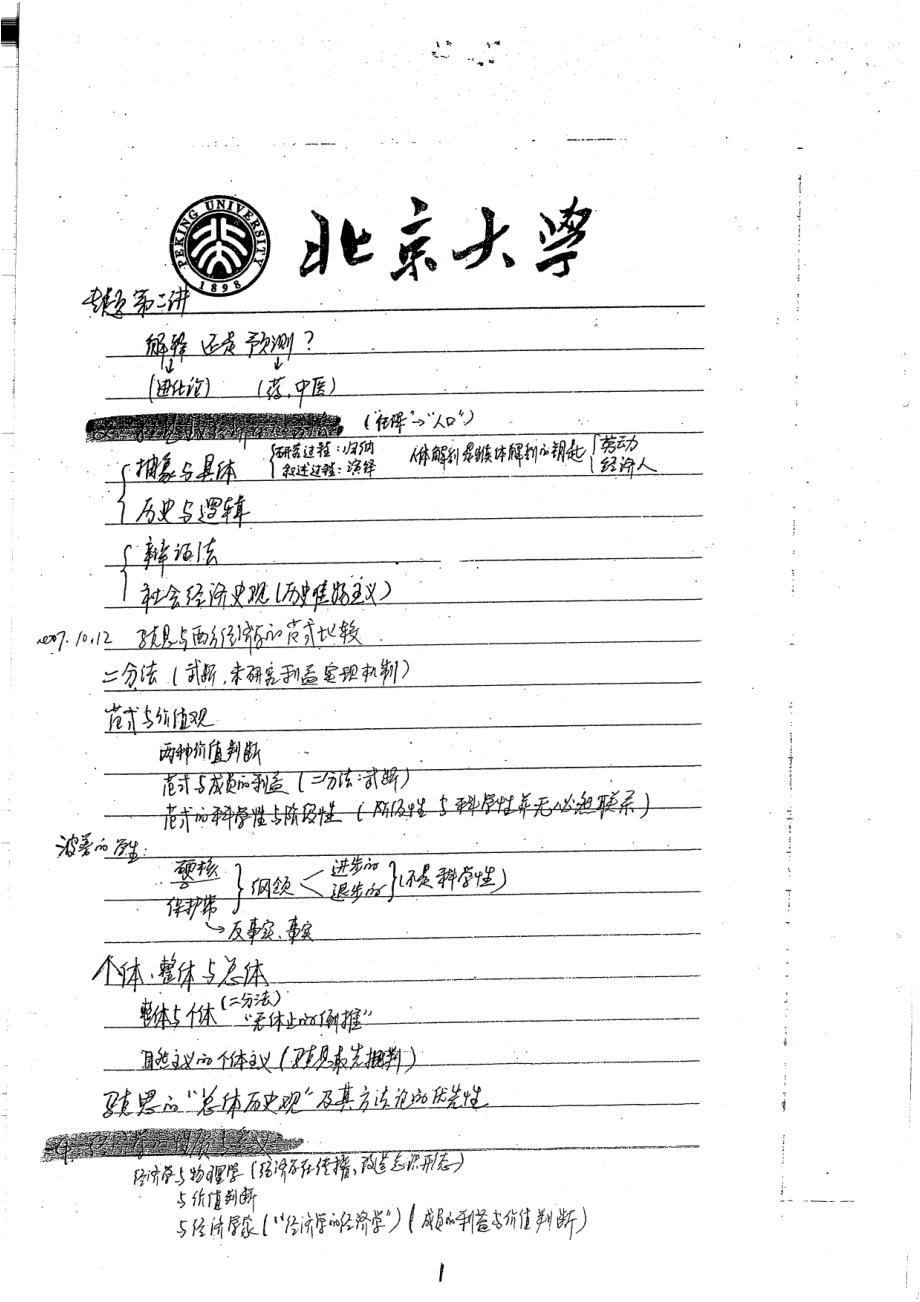 PEKING UNIVERSITY 1898
北京大学
专题第二讲
解释 还是 预测？
(进化论) (药，中医)
("任择"→"人口")
抽象与具体 研究过程：归纳 叙述过程：演绎 人体解剖是猴体解剖的钥匙 劳动 经济人
历史与逻辑
辩证法
社会经济史观(历史唯物主义)
2007.10.12 马克思与西方经济学的范式比较
二分法(武断，未研究利益实现机制)
范式与价值观
两种价值判断
范式与成员的利益(二分法：武断)
范式的科学性与阶级性(阶级性与科学性并无必然联系)
波普的学生：
硬核
保护带 纲领 进步的 退步的 (不是科学性)
→反事实、事实
个体、整体与总体
整体与个体(二分法) "无休止的倒推"
自然主义的个体主义(马克思最先批判)
马克思的"总体历史观"及其方法论的优先性
经济学与物理学(经济学在传播、改造意识形态)
与价值判断
与经济学家("经济学的经济学")(成员的利益与价值判断)
1